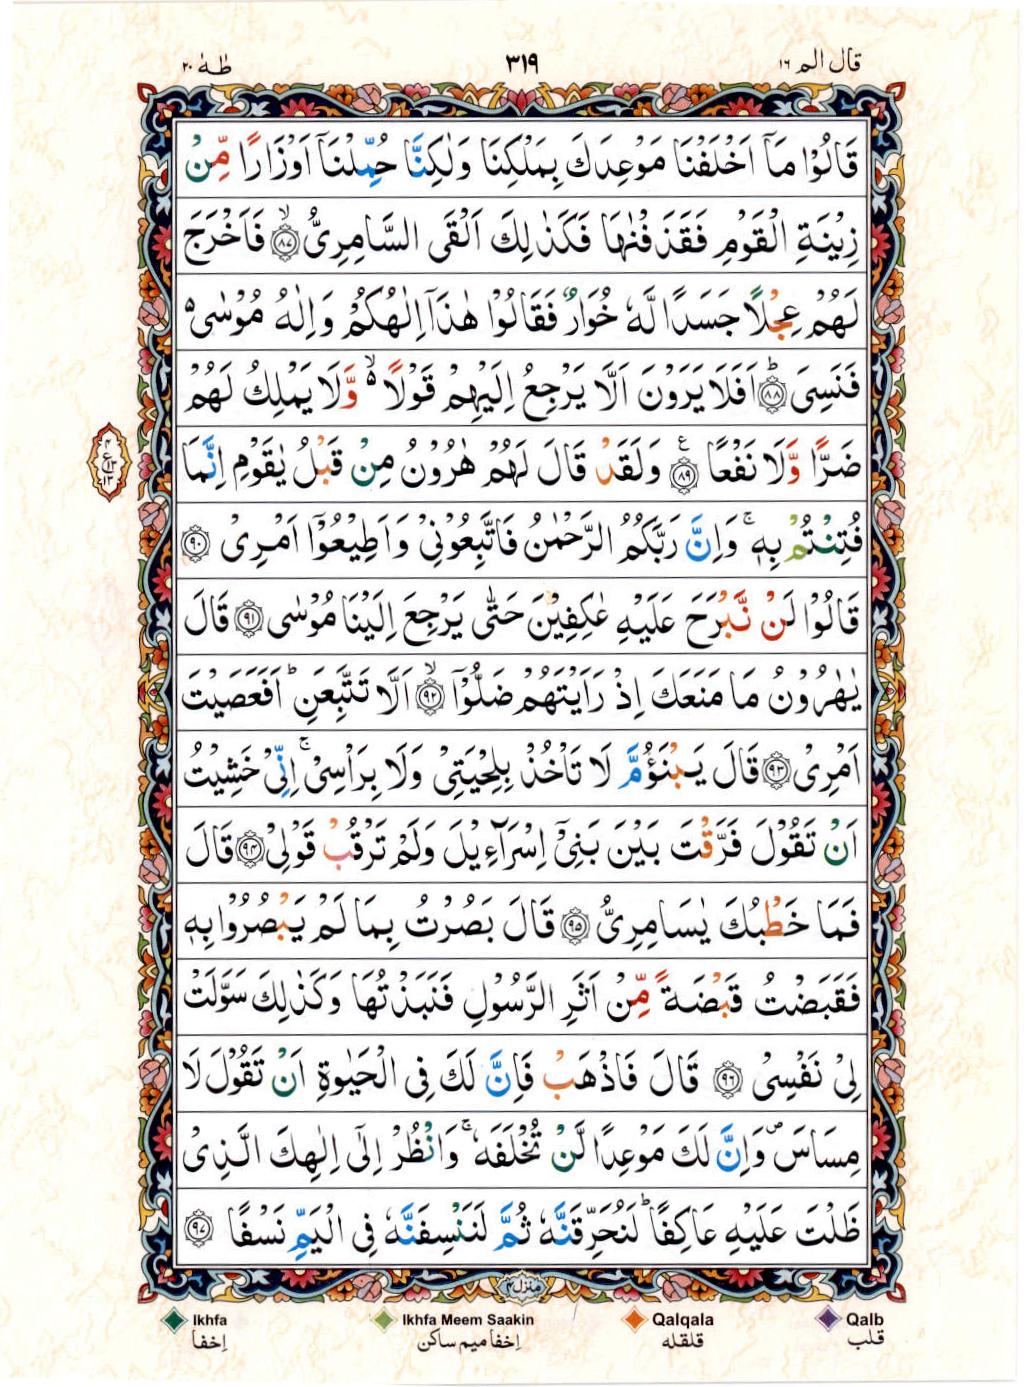 قال الم ١٦
٣١٩
طٰهٰ ٢٠
قَالُوْا مَاۤ اَخْلَفْنَا مَوْعِدَكَ بِمَلْكِنَا وَلٰكِنَّا حُمِّلْنَاۤ اَوْزَارًا مِّنْ
زِيْنَةِ الْقَوْمِ فَقَذَفْنٰهَا فَكَذٰلِكَ اَلْقَى السَّامِرِىُّ ۙ‏﴿۸۷﴾ فَاَخْرَجَ
لَهُمْ عِجْلًا جَسَدًا لَّهٗ خُوَارٌ فَقَالُوْا هٰذَاۤ اِلٰهُكُمْ وَاِلٰهُ مُوْسٰى ۵
فَنَسِىَ ؕ‏﴿۸۸﴾ اَفَلَا يَرَوْنَ اَلَّا يَرْجِعُ اِلَيْهِمْ قَوْلًا ۵ ۙ وَّلَا يَمْلِكُ لَهُمْ
ضَرًّا وَّلَا نَفْعًا ﴿۸۹﴾ ع وَلَقَدْ قَالَ لَهُمْ هٰرُوْنُ مِنْ قَبْلُ يٰقَوْمِ اِنَّمَا
٤
ع ١٣
١٣
فُتِنْتُمْ بِهٖ ۚ وَاِنَّ رَبَّكُمُ الرَّحْمٰنُ فَاتَّبِعُوْنِىْ وَاَطِيْعُوْۤا اَمْرِىْ ﴿۹۰﴾
قَالُوْا لَنْ نَّبْرَحَ عَلَيْهِ عٰكِفِيْنَ حَتّٰى يَرْجِعَ اِلَيْنَا مُوْسٰى ﴿۹۱﴾ قَالَ
يٰهٰرُوْنُ مَا مَنَعَكَ اِذْ رَاَيْتَهُمْ ضَلُّوْۤا ۙ‏﴿۹۲﴾ اَلَّا تَتَّبِعَنِ ؕ اَفَعَصَيْتَ
اَمْرِىْ ﴿۹۳﴾ قَالَ يَبْنَؤُمَّ لَا تَاْخُذْ بِلِحْيَتِىْ وَلَا بِرَاْسِىْ ۚ اِنِّىْ خَشِيْتُ
اَنْ تَقُوْلَ فَرَّقْتَ بَيْنَ بَنِىْۤ اِسْرَآءِيْلَ وَلَمْ تَرْقُبْ قَوْلِىْ ﴿۹۴﴾ قَالَ
فَمَا خَطْبُكَ يٰسَامِرِىُّ ﴿۹۵﴾ قَالَ بَصُرْتُ بِمَا لَمْ يَبْصُرُوْا بِهٖ
فَقَبَضْتُ قَبْضَةً مِّنْ اَثَرِ الرَّسُوْلِ فَنَبَذْتُهَا وَكَذٰلِكَ سَوَّلَتْ
لِىْ نَفْسِىْ ﴿۹۶﴾ قَالَ فَاذْهَبْ فَاِنَّ لَكَ فِى الْحَيٰوةِ اَنْ تَقُوْلَ لَا
مِسَاسَ ۪ وَاِنَّ لَكَ مَوْعِدًا لَّنْ تُخْلَفَهٗ ۚ وَانْظُرْ اِلٰٓى اِلٰهِكَ الَّذِىْ
ظَلْتَ عَلَيْهِ عَاكِفًا ؕ لَنُحَرِّقَنَّهٗ ثُمَّ لَنَنْسِفَنَّهٗ فِى الْيَمِّ نَسْفًا ﴿۹۷﴾
منزل ٤
Ikhfa
Ikhfa Meem Saakin
Qalqala
Qalb
اِخفا
اِخفا میم ساکن
قلقله
قلب